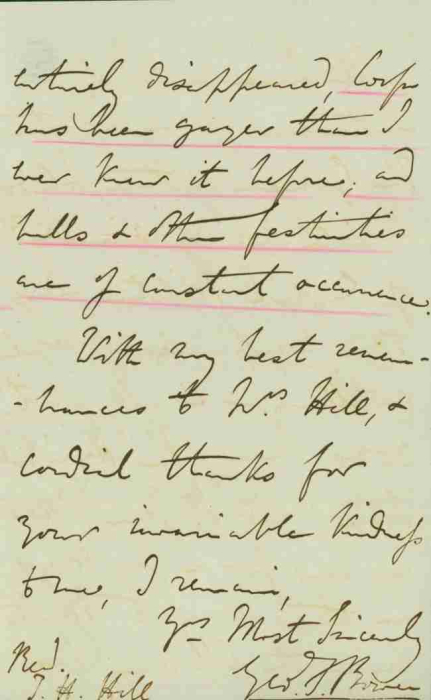 entirely disappeared, Corfu
has been gayer than I
ever knew it before; and
balls & other festivities
are of constant occurrence.
With my best remem-
-brances to Mrs. Hill, &
cordial thanks for
your invariable kindness
to me, I remain,
Yrs Most Sincerely
Geo. F. Bowen
Revd.
J. H. Hill